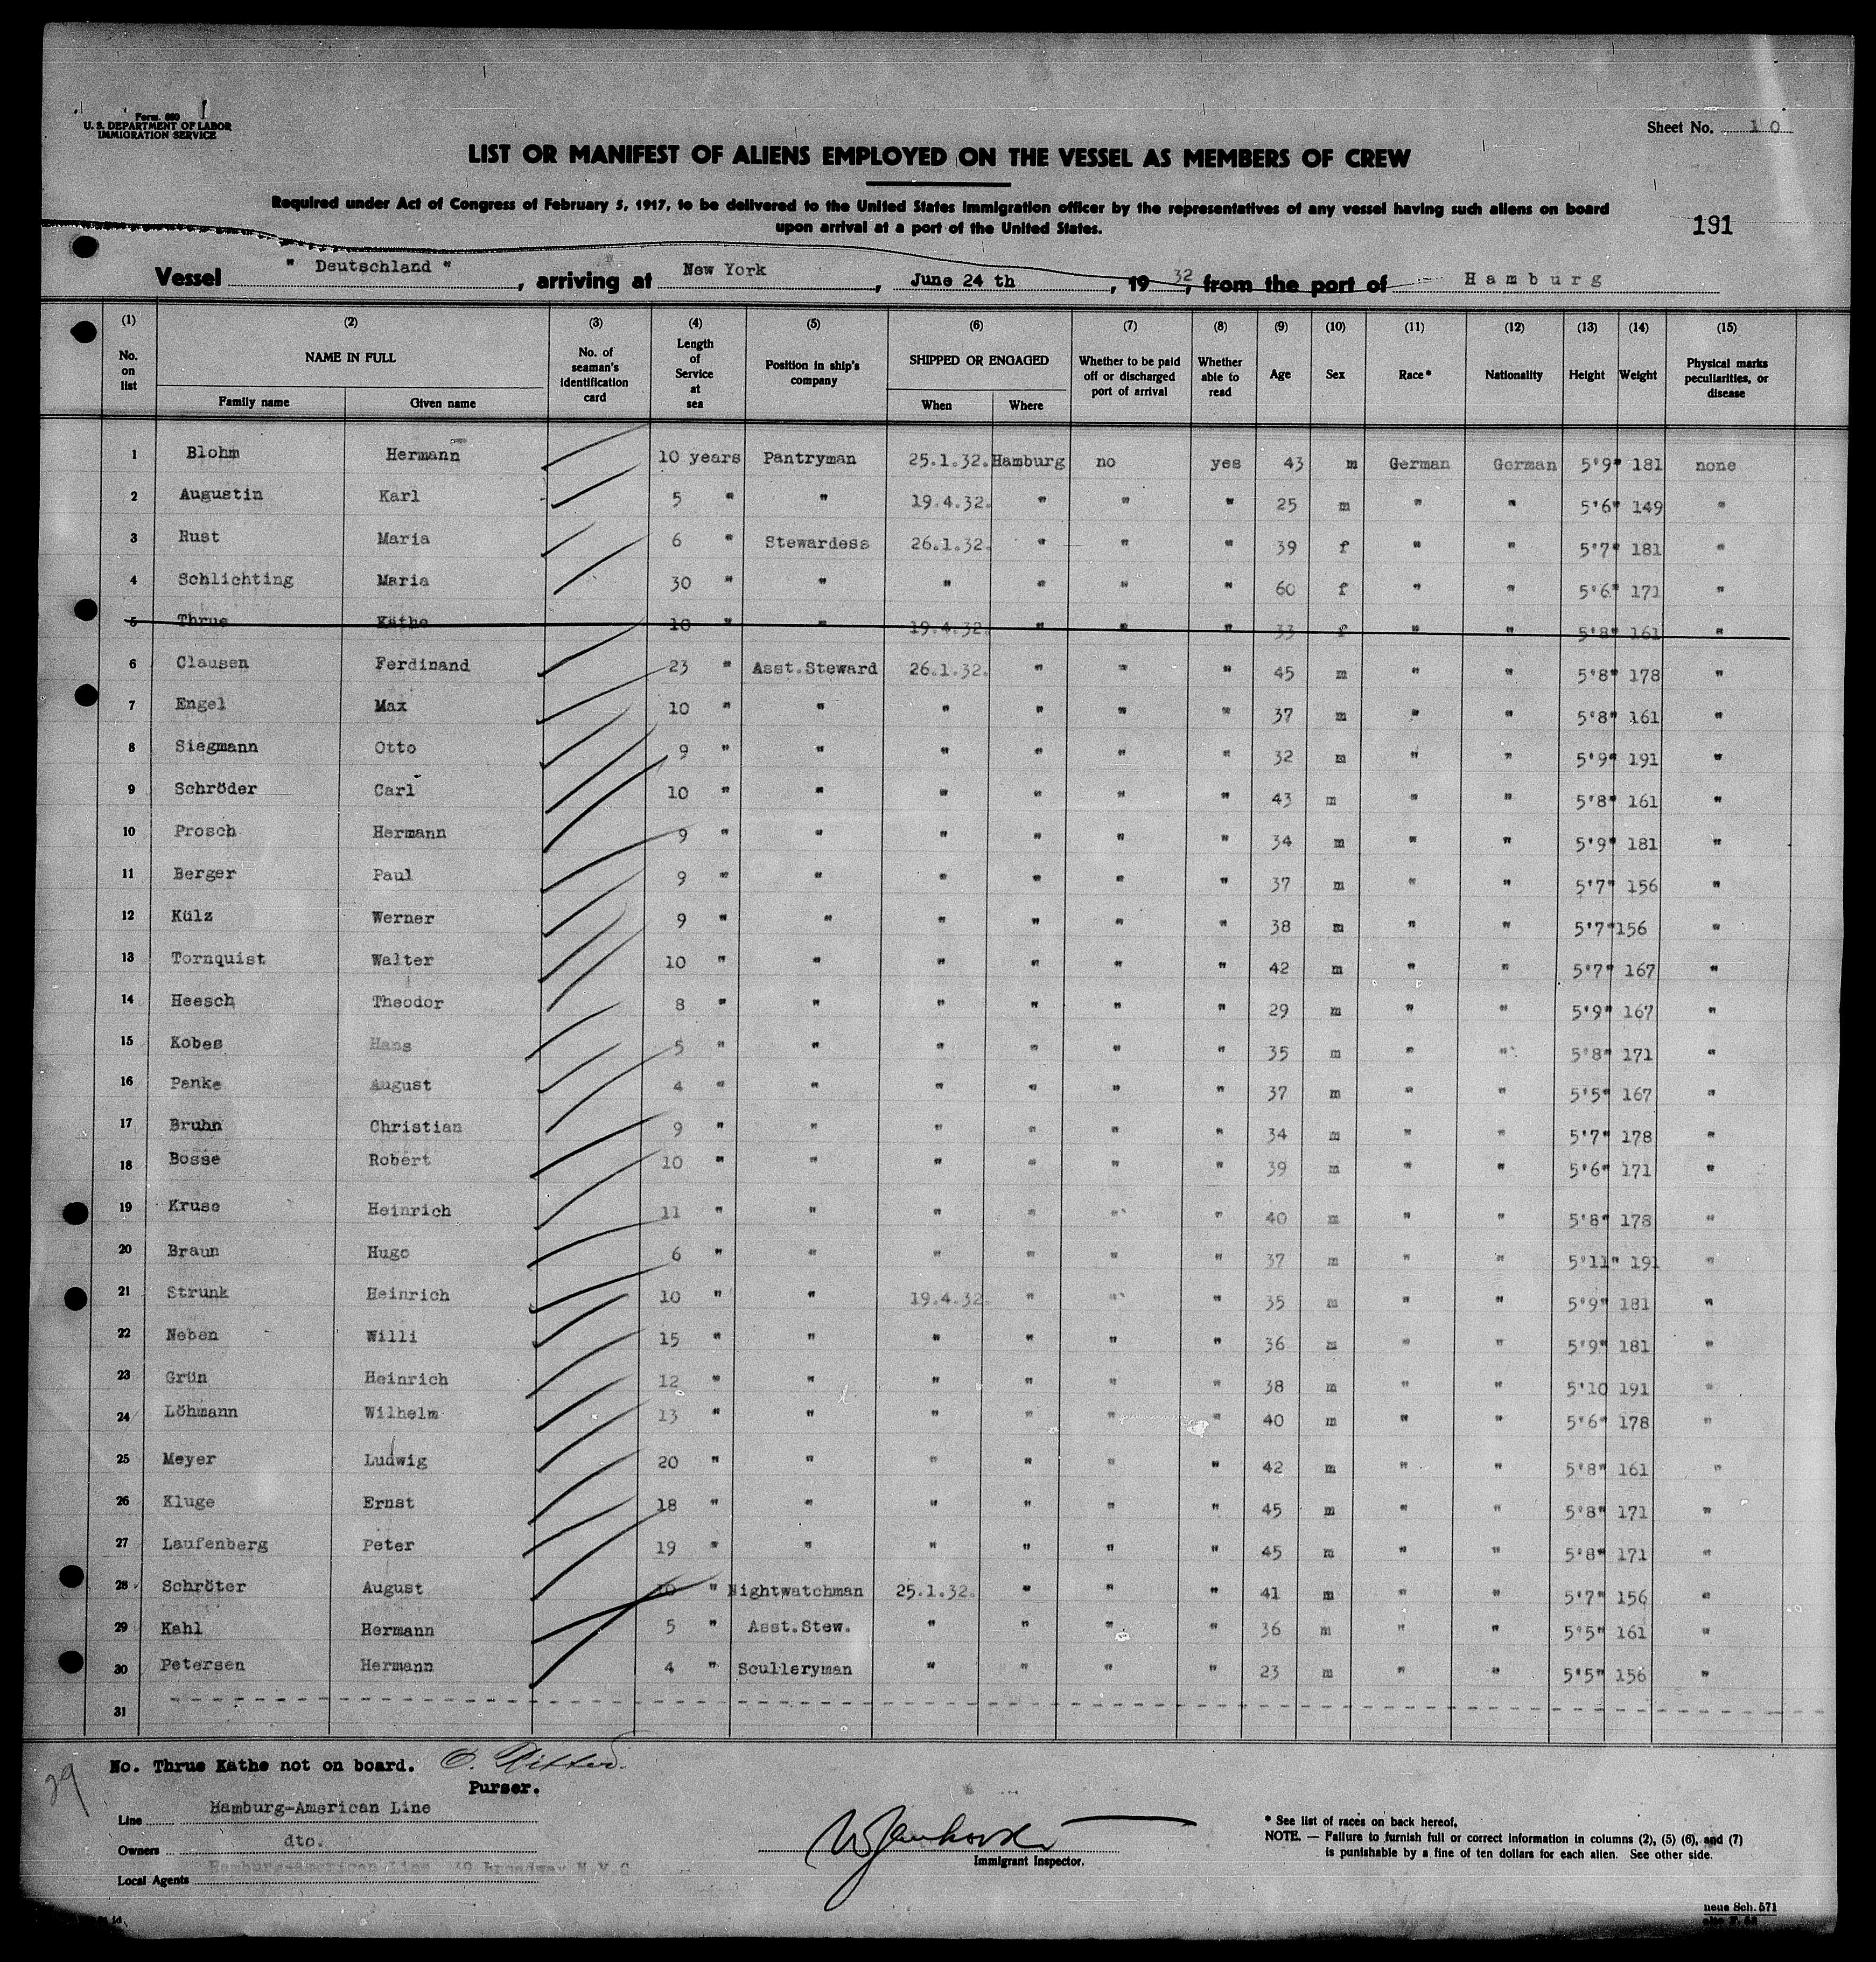 Form. 680
U. S. DEPARTMENT OF LABOR
IMMIGRATION SERVICE
Sheet No. 10
LIST OR MANIFEST OF ALIENS EMPLOYED ON THE VESSEL AS MEMBERS OF CREW
Required under Act of Congress of February 5, 1917, to be delivered to the United States immigration officer by the representatives of any vessel having such aliens on board
upon arrival at a port of the United States.
191
Vessel " Deutschland ", arriving at New York, June 24 th, 1932, from the port of Hamburg
(1) (2) (3) (4) (5) (6) (7) (8) (9) (10) (11) (12) (13) (14) (15)
No. on list NAME IN FULL Family name Given name No. of seaman's identification card Length of Service at sea Position in ship's company SHIPPED OR ENGAGED When Where Whether to be paid off or discharged port of arrival Whether able to read Age Sex Race* Nationality Height Weight Physical marks peculiarities, or disease
1 Blohm Hermann 10 years Pantryman 25.1.32. Hamburg no yes 43 m German German 5'9" 181 none
2 Augustin Karl 5 " " 19.4.32. " " " 25 m " " 5'6" 149 "
3 Rust Maria 6 " Stewardess 26.1.32. " " " 39 f " " 5'7" 181 "
4 Schlichting Maria 30 " " " " " " 60 f " " 5'6" 171 "
5 Thrue Käthe 10 " " 19.4.32. " " " 33 f " " 5'8" 161 "
6 Clausen Ferdinand 23 " Asst.Steward 26.1.32. " " " 45 m " " 5'8" 178 "
7 Engel Max 10 " " " " " " 37 m " " 5'8" 161 "
8 Siegmann Otto 9 " " " " " " 32 m " " 5'9" 191 "
9 Schröder Carl 10 " " " " " " 43 m " " 5'8" 161 "
10 Prosch Hermann 9 " " " " " " 34 m " " 5'9" 181 "
11 Berger Paul 9 " " " " " " 37 m " " 5'7" 156 "
12 Külz Werner 9 " " " " " " 38 m " " 5'7" 156 "
13 Tornquist Walter 10 " " " " " " 42 m " " 5'7" 167 "
14 Heesch Theodor 8 " " " " " " 29 m " " 5'9" 167 "
15 Kobes Hans 5 " " " " " " 35 m " " 5'8" 171 "
16 Panke August 4 " " " " " " 37 m " " 5'5" 167 "
17 Bruhn Christian 9 " " " " " " 34 m " " 5'7" 178 "
18 Bosse Robert 10 " " " " " " 39 m " " 5'6" 171 "
19 Kruse Heinrich 11 " " " " " " 40 m " " 5'8" 178 "
20 Braun Hugo 6 " " " " " " 37 m " " 5'11" 191 "
21 Strunk Heinrich 10 " " 19.4.32. " " " 35 m " " 5'9" 181 "
22 Neben Willi 15 " " " " " " 36 m " " 5'9" 181 "
23 Grün Heinrich 12 " " " " " " 38 m " " 5'10 191 "
24 Löhmann Wilhelm 13 " " " " " " 40 m " " 5'6" 178 "
25 Meyer Ludwig 20 " " " " " " 42 m " " 5'8" 161 "
26 Kluge Ernst 18 " " " " " " 45 m " " 5'8" 171 "
27 Laufenberg Peter 19 " " " " " " 45 m " " 5'8" 171 "
28 Schröter August 10 " Nightwatchman 25.1.32. " " " 41 m " " 5'7" 156 "
29 Kahl Hermann 5 " Asst.Stew. " " " " 36 m " " 5'5" 161 "
30 Petersen Hermann 4 " Sculleryman " " " " 23 m " " 5'5" 156 "
31
No. Thrue Kathe not on board.
Purser.
29
Line Hamburg-American Line
Owners dto.
Local Agents Hamburg-American Line 39 Broadway N.Y.C
Immigrant Inspector.
* See list of races on back hereof.
NOTE. — Failure to furnish full or correct information in columns (2), (5) (6), and (7)
is punishable by a fine of ten dollars for each alien. See other side.
neue Sch. 571